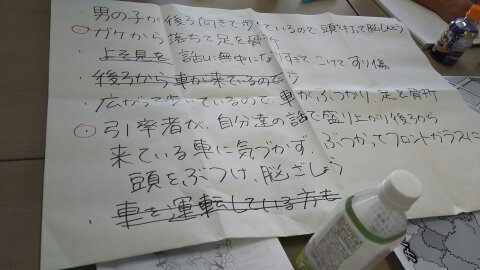 ・男の子が後ろ向きで歩いているので頭を打って脳しょう
・ガケから落ちて足を骨折
・よそ見を 話に夢中になりすぎて こけてすり傷
・後ろから車が来ているのでう
・広がって歩いているので、車がぶつかり、足を骨折
・引率者が、自分達の話で盛り上がり後ろから
来ている車に気づかず、ぶつかってフロントガラスに
頭をぶつけ、脳ざしょう
・車を運転している方も